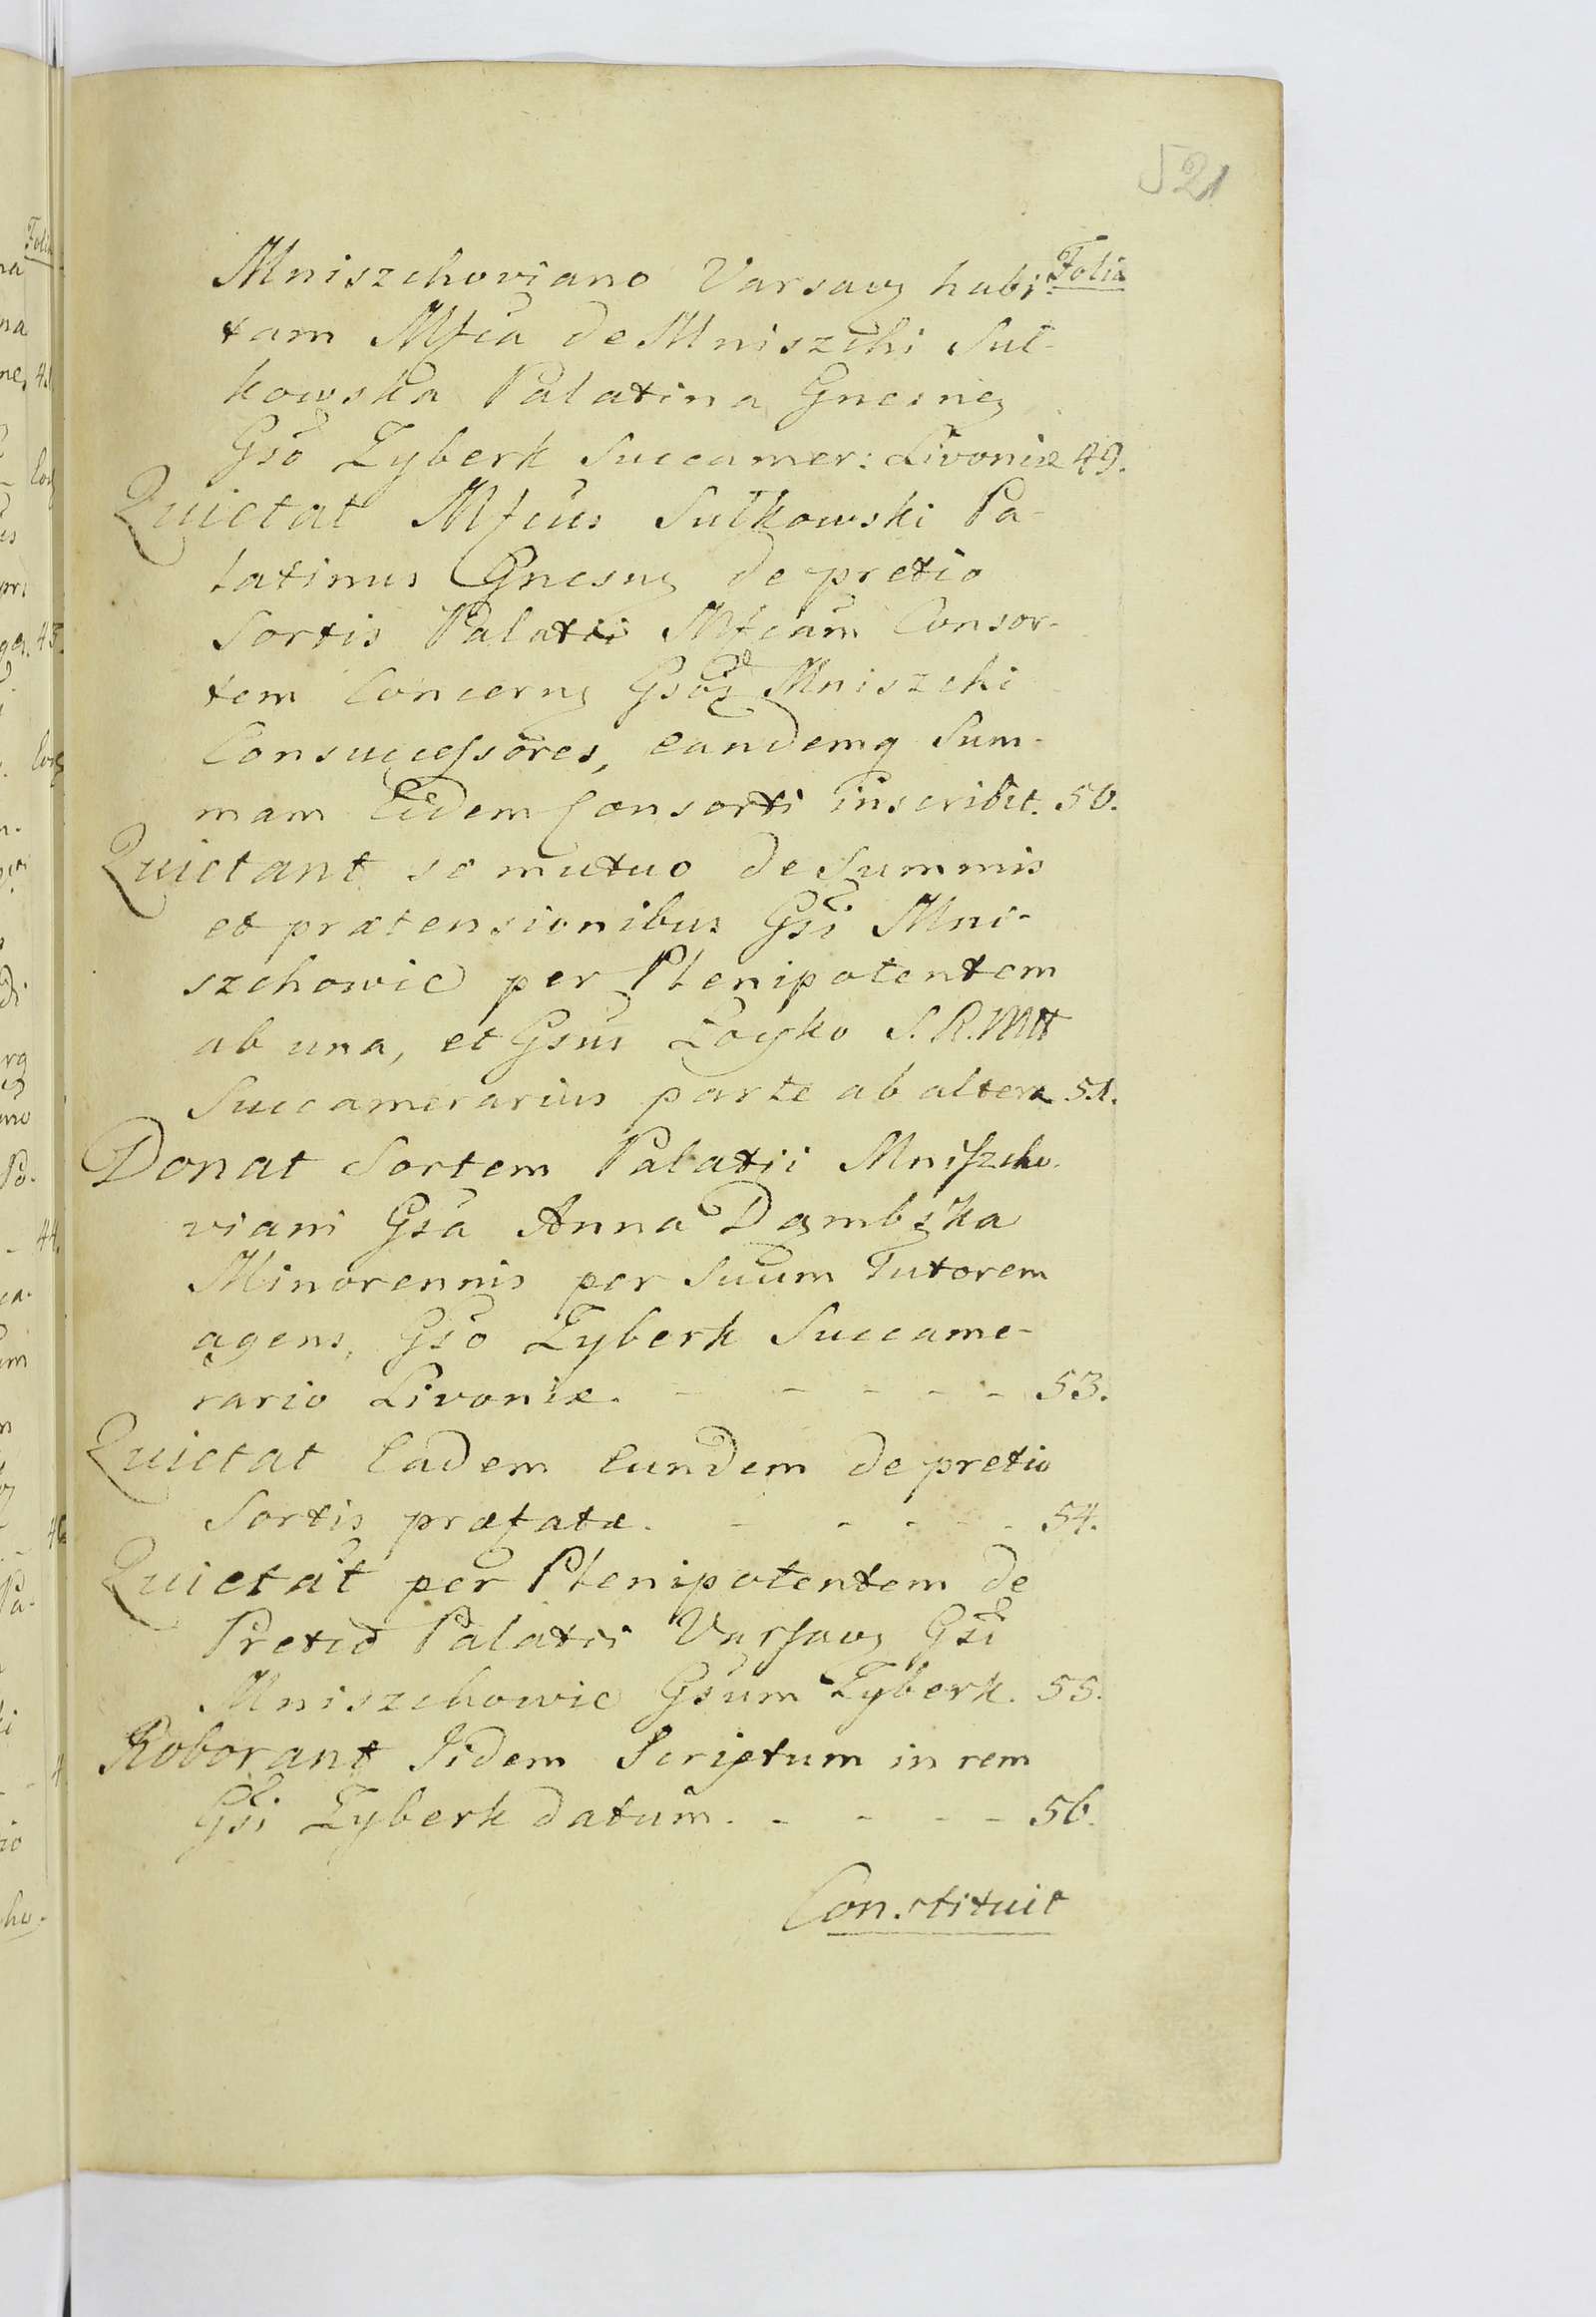 521
Folia
Mniszchoviano Varsavq habi
tam Mfca de Mniszchi Suł-
kowska Palatina Gnesneq
Gso Zyberk Succamer: Livoniæ 49.
Quietat Mfcus Sułkowski Pa-
latinus Gnesnq de pretio
Sortis Palatii Mfcam Consor-
tem Concernq Gsos Mniszchi
Consuccessores, eandemq Sum-
mam Eidem Consorti inscribit. 50.
Quietant se mutuo de Summis
et prætensionibus Gsi Mni-
szchowie per Plenipotentem
ab una, et Gsus Łoyko S. R. Mtt
Succamerarius parte ab altera 51.
Donat Sortem Palatii Mniszcho-
viani Gsa Anna Dąmbska
Minorennis per Suum Tutorem
agens, Gso Zyberk Succame-
rario Livoniæ. - - - - - 53.
Quietat Eadem Eundem de pretio
Sortis præfatæ. - - - - - 54.
Quietat per Plenipotentem de
Pretio Palatii Varsavq Gsi
Mniszchowie Gsum Zyberk. 55.
Roborant Iidem Scriptum in rem
Gsi Zyberk datum. - - - - 56.
Constituit